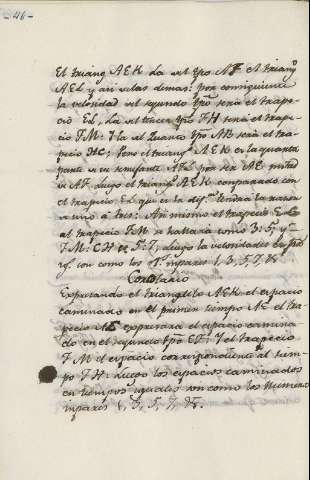 -46-
El triang. AEK la del tpo AF el triang.
AEL y asi de las demas: por consiguiente
la velosidad del segundo tpo será el trape-
cio EL, la del tercer tpo FH será el trape-
cio FM: Y la del Quarto tpo AB será el tra-
pecio HC; Pero el triang. AEK es la quarta
parte de su semejante AFL por ser AE mitad
de AF luego el triang. AEK comparado con
el trapecio EL que es la dif.a tendrá la razon
de uno á tres: Asi mismo el trapecio EL
al trapecio FM se hallará como 3:5, y
FM: CH:: 5:7; luego las velocidades
son como los impares 1, 3, 5, 7. &.
Corolario
Expresando el triangulo AEK el espacio
caminado en el primer tiempo AE el tra-
pecio expresará el espacio camina-
do en el segundo tpo EF: Y el trapecio
FM el espacio correspondiente al tiem-
po FH: Luego los espacios caminados
en tiempos iguales son como los numeros
impares 1, 3, 5, 7, &.